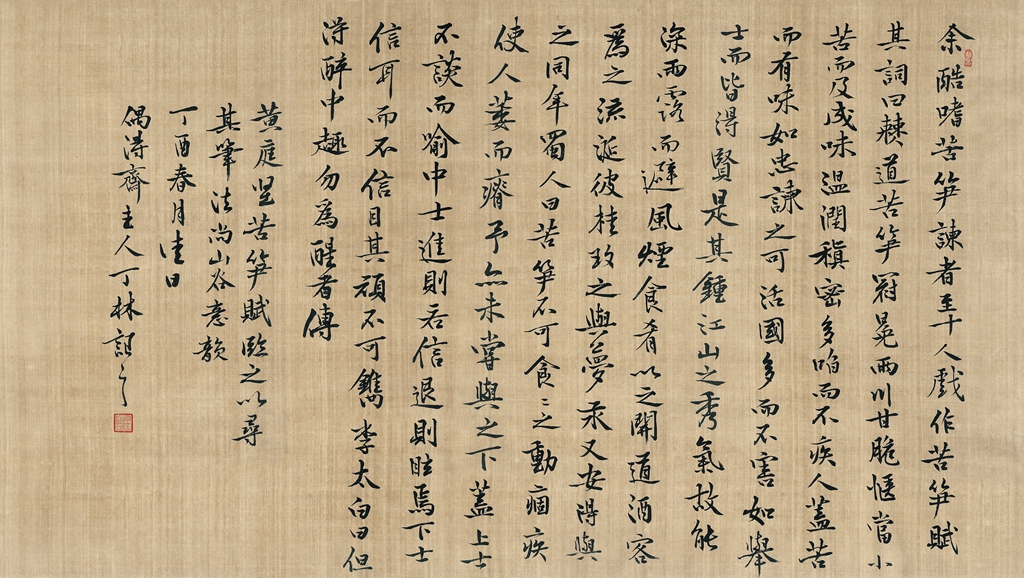 余酷嗜苦笋諫者至十人戲作苦笋賦
其詞曰棘道苦笋冠冕兩川甘脆愜當小
苦而反成味温潤稹密多啗而不疾人蓋苦
而有味如忠諫之可活國多而不害如舉
士而皆得賢是其鍾江山之秀氣故能
深雨露而避風煙食肴以之開道酒客
爲之流涎彼桂玫之與夢汞又安得與
之同年蜀人曰苦笋不可食〻之動痼疾
使人萎而瘠予亦未嘗與之下蓋上士
不談而喻中士進則若信退則眩焉下士
信耳而不信目其頑不可鐫李太白曰但
得醉中趣勿爲醒者傳
黄庭堅苦笋賦臨之以尋
其筆法尚山谷意韻
丁酉春月佳日
偶得齋主人丁林記之